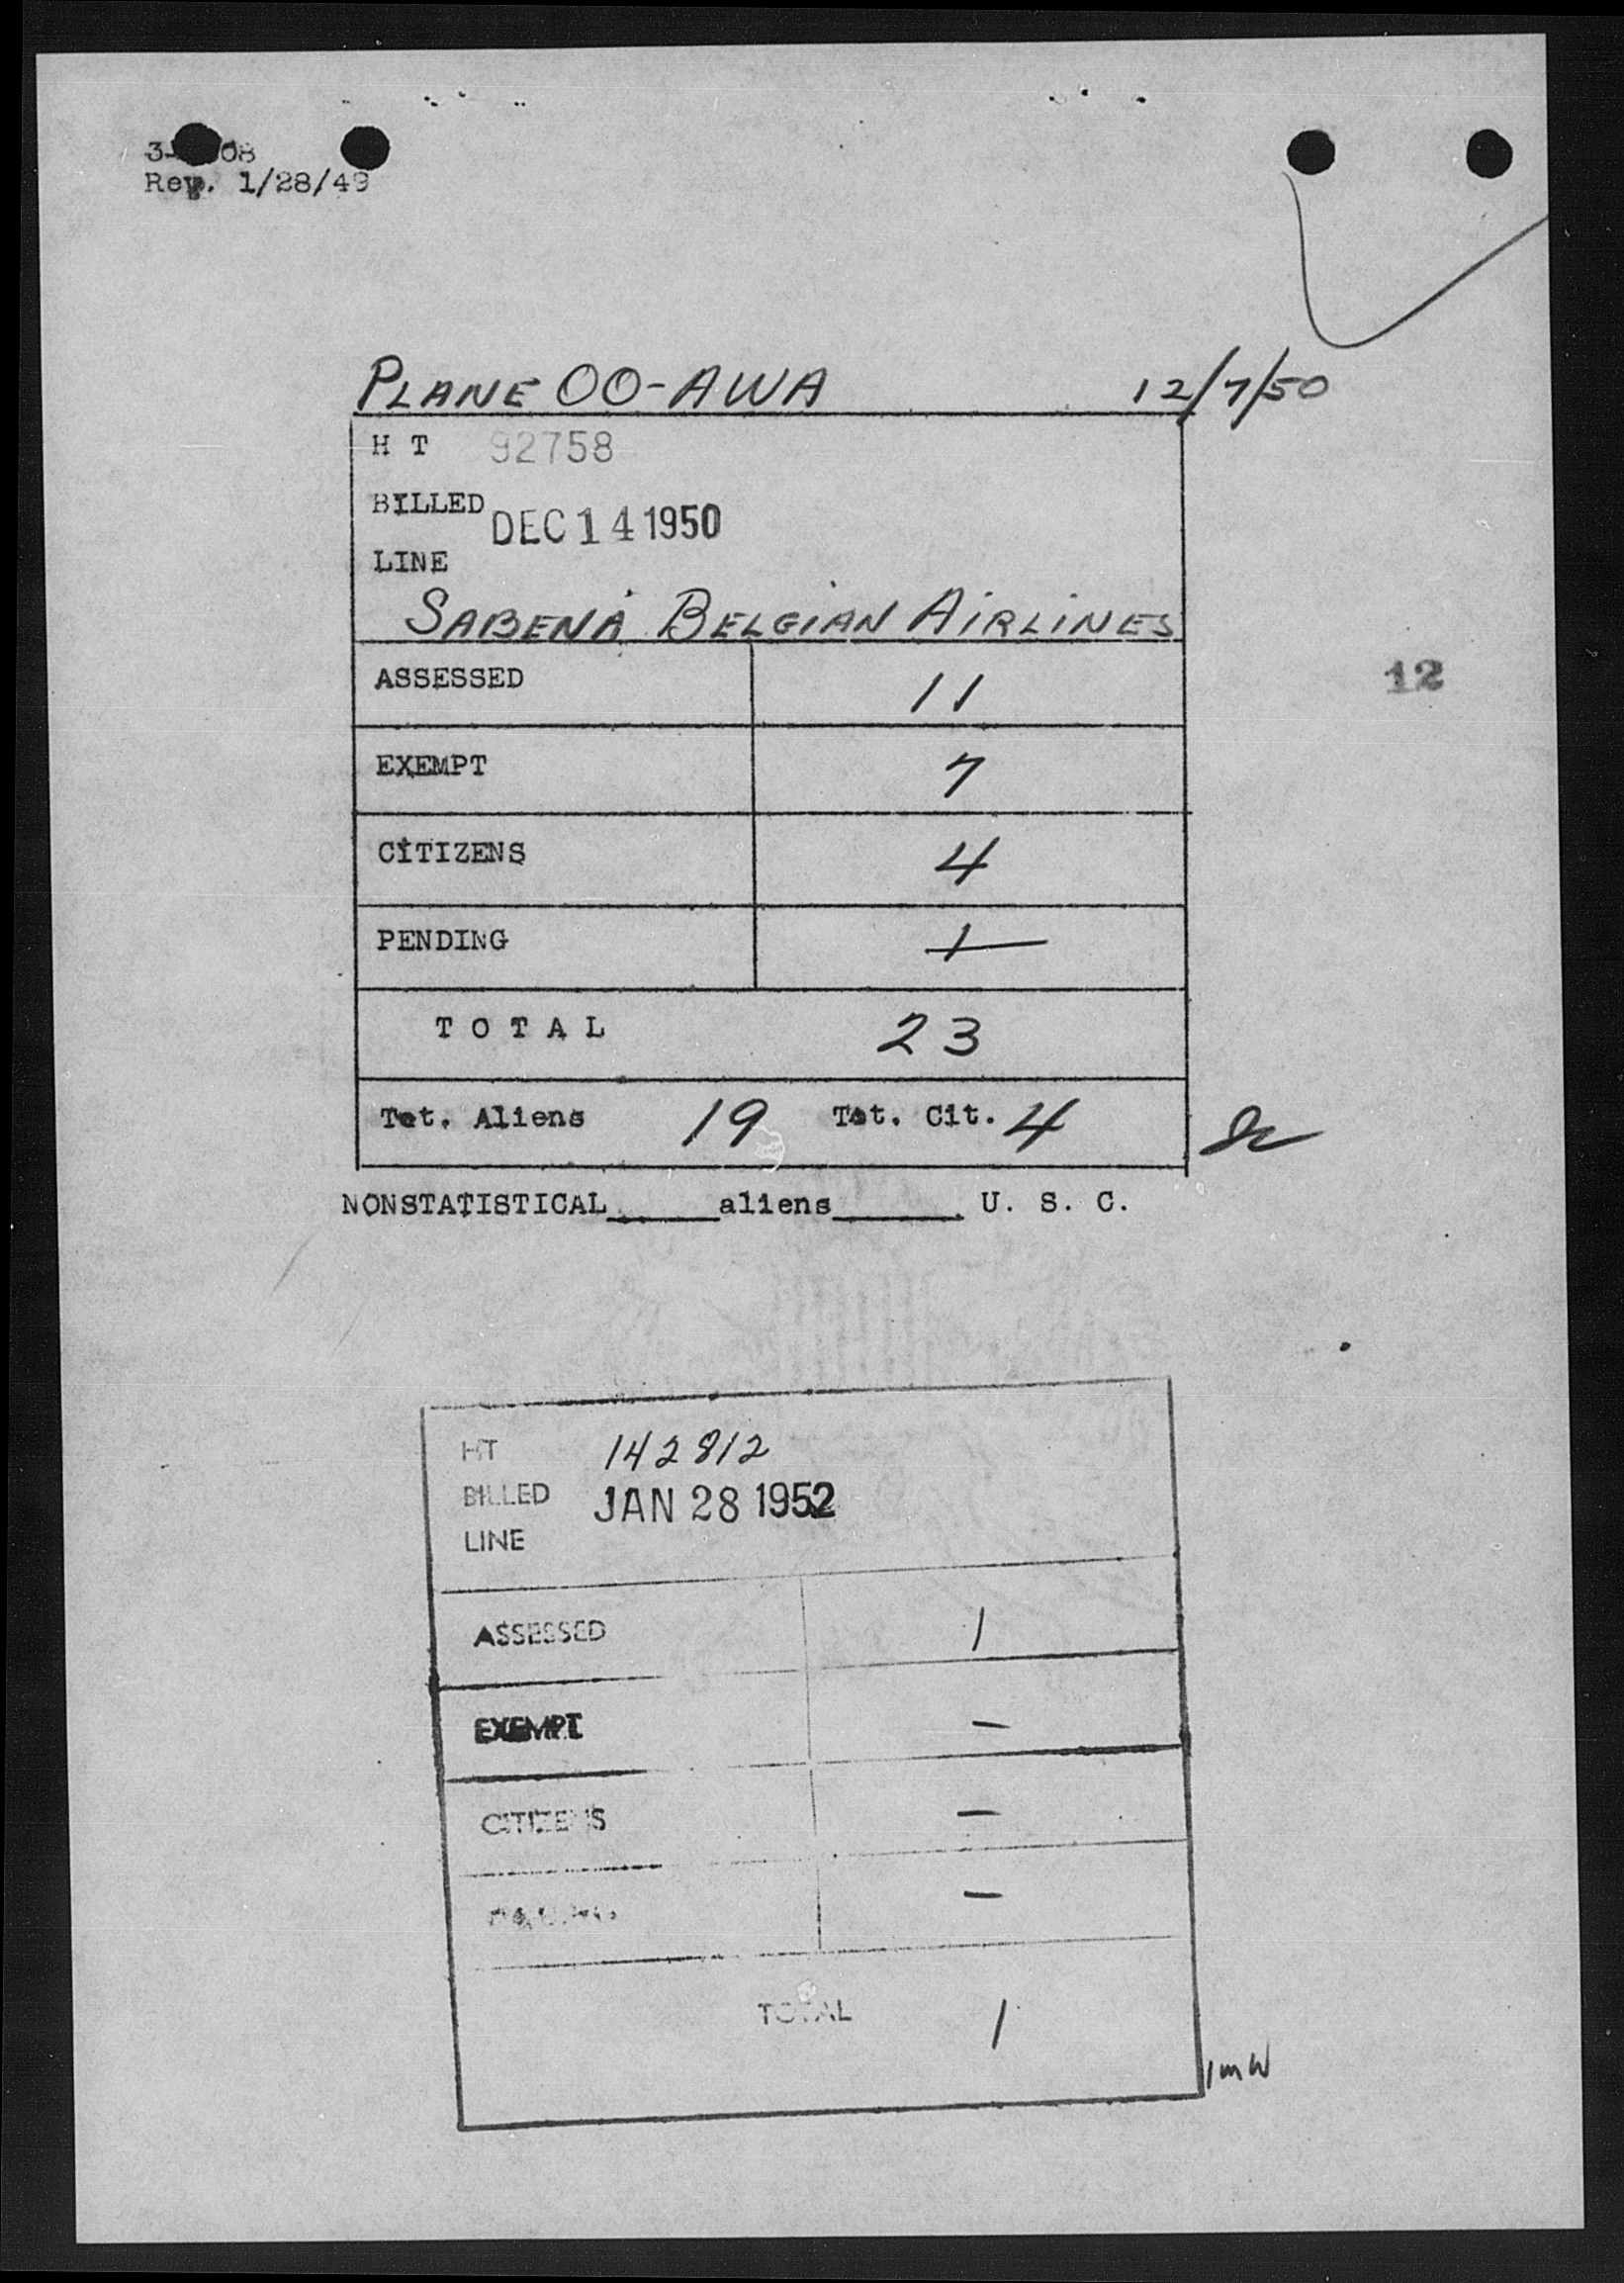 Rev. 1/28/49
PLANE OO-AWA 12/7/50
H T 92758
BILLED DEC 14 1950
LINE
SABENA BELGIAN AIRLINES
12
ASSESSED 11
EXEMPT 7
CITIZENS 4
PENDING 1
T O T A L 23
Tot. Aliens 19 Tot. Cit. 4
NONSTATISTICAL______aliens_______ U. S. C.
HT 142812
BILLED JAN 28 1952
LINE
ASSESSED 1
EXEMPT -
CITIZENS -
PENDING -
TOTAL 1